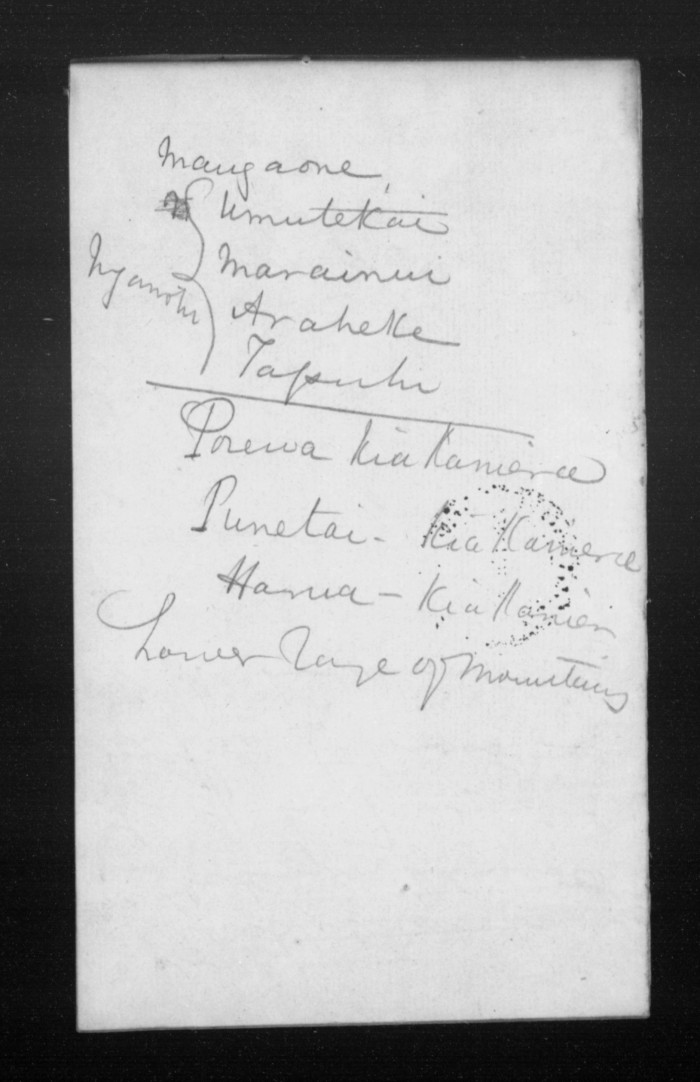 Mangaone,
Umutekai
Marainui
Ngamotu
Araheke
Tapuhi
Porewa Kia Kamerce
Punetai - Kia Kamerce
Hanua - Kia Kamer
Lower range of Mountains